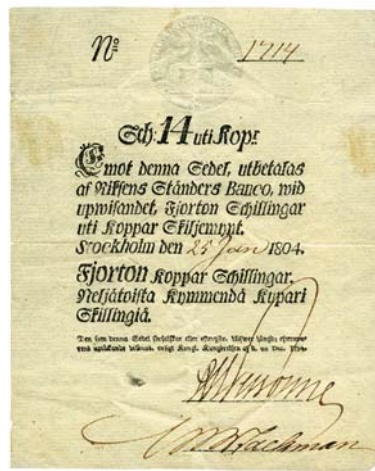 No 1714
Sch: 14 uti Kopr
Emot denna Sedel, utbetalas
af Riksens Ständers Banco, wid
upwisandet, Fjorton Schillingar
uti Koppar Skiljemynt.
Stockholm den 25 Jan 1804.
Fjorton Koppar Schillingar.
Neljätoista Kymmendä Kypari
Skillingiä.
Den som denna Sedel eller